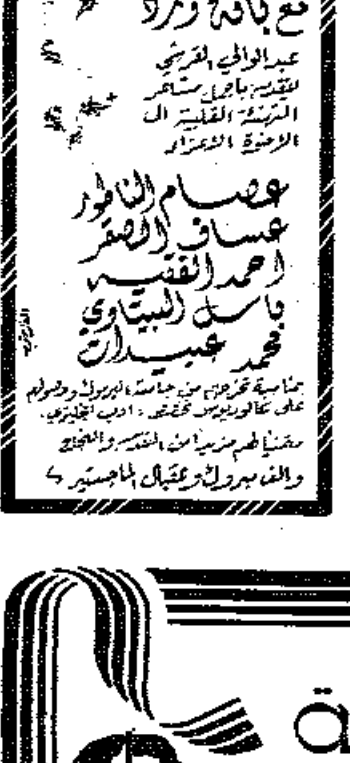 مع باقة ورد
عبدالوالي القرشي
يتقدم باجمل مشاعر
التهنئة القلبية الى
الاخوة الاعزاء
عصام الناطور
عساف الصقر
احمد الفقيه
باسل البيتاوي
محمد عبيدات
بمناسبة تخرجهم من جامعة اليرموك وحصولهم
على بكالوريوس تخصص: ادب انجليزي.
متمنيا لهم مزيدا من التقدم والنجاح
والف مبروك وعقبال الماجستير
ة